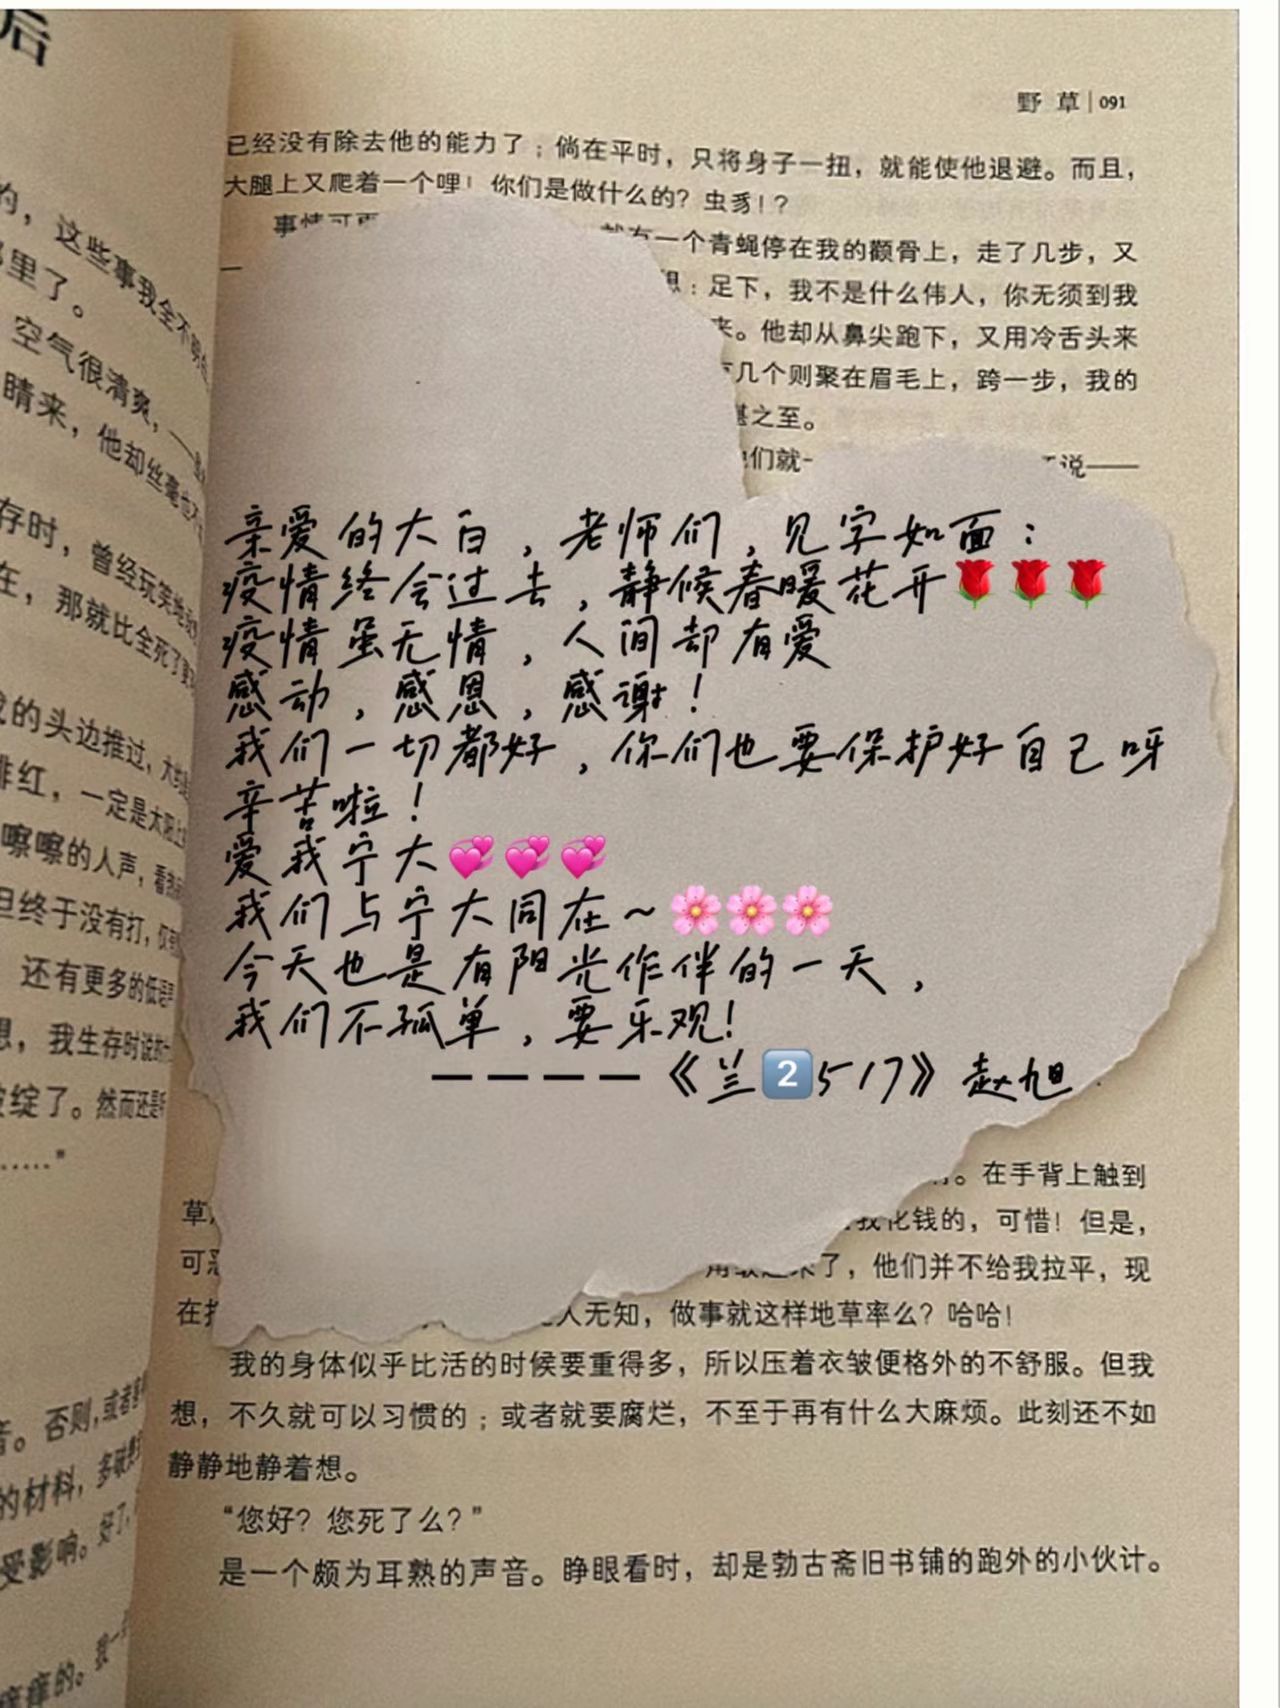 后
野草|091
已经没有除去他的能力了；倘在平时，只将身子一扭，就能使他退避。而且，
大腿上又爬着一个哩！你们是做什么的？虫豸！？
事情可更
就有一个青蝇停在我的颧骨上，走了几步，又
想：足下，我不是什么伟人，你无须到我
来。他却从鼻尖跑下，又用冷舌头来
几个则聚在眉毛上，跨一步，我的
之至。
们就
说——
亲爱的大白，老师们，见字如面：
疫情终会过去，静候春暖花开🌹🌹🌹
疫情虽无情，人间却有爱
感动，感恩，感谢！
我们一切都好，你们也要保护好自己呀
辛苦啦！
爱我宁大💞💞💞
我们与宁大同在~🌸🌸🌸
今天也是有阳光作伴的一天，
我们不孤单，要乐观！
————《兰2️⃣517》赵旭
。在手背上触到
我化钱的，可惜！但是，
了，他们并不给我拉平，现
在
人无知，做事就这样地草率么？哈哈！
我的身体似乎比活的时候要重得多，所以压着衣皱便格外的不舒服。但我
想，不久就可以习惯的；或者就要腐烂，不至于再有什么大麻烦。此刻还不如
静静地静着想。
“您好？您死了么？”
是一个颇为耳熟的声音。睁眼看时，却是勃古斋旧书铺的跑外的小伙计。
的，这些事我全不明白
那里了。
空气很清爽，——
睛来，他却丝毫也不
存时，曾经玩笑地
在，那就比全死了更
我的头边推过，大约
绯红，一定是太阳上
嚓嚓的人声，看热闹
但终于没有打，仅
还有更多的低语声
想，我生存时说的
破绽了。然而还是
……”
音。否则，或者
的材料，多
受影响。好了，
痒痒的。我一